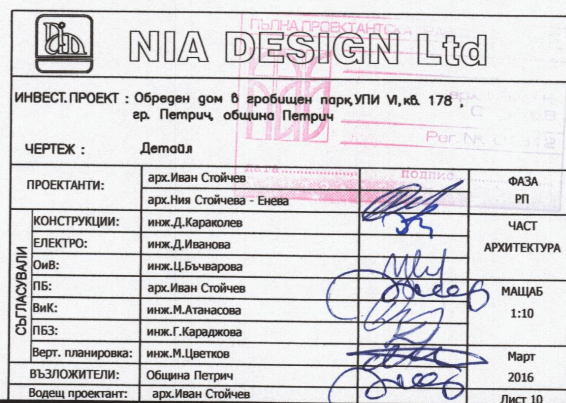 NIA DESIGN Ltd
ПЪЛНА ПРОЕКТАНТСКА
ИНВЕСТ.ПРОЕКТ : Обреден дом в гробищен парк,УПИ VI,кв. 178 ,
гр. Петрич, община Петрич
Рег. №
ЧЕРТЕЖ : Детайл
Дата Подпис
ПРОЕКТАНТИ: арх.Иван Стойчев ФАЗА
арх.Ния Стойчева - Енева РП
СЪГЛАСУВАЛИ
КОНСТРУКЦИИ: инж.Д.Караколев ЧАСТ
ЕЛЕКТРО: инж.Д.Иванова АРХИТЕКТУРА
ОиВ: инж.Ц.Бъчварова
ПБ: арх.Иван Стойчев МАЩАБ
ВиК: инж.М.Атанасова 1:10
ПБЗ: инж.Г.Караджова
Верт. планировка: инж.М.Цветков Март
ВЪЗЛОЖИТЕЛИ: Община Петрич 2016
Водещ проектант: арх.Иван Стойчев Лист 10